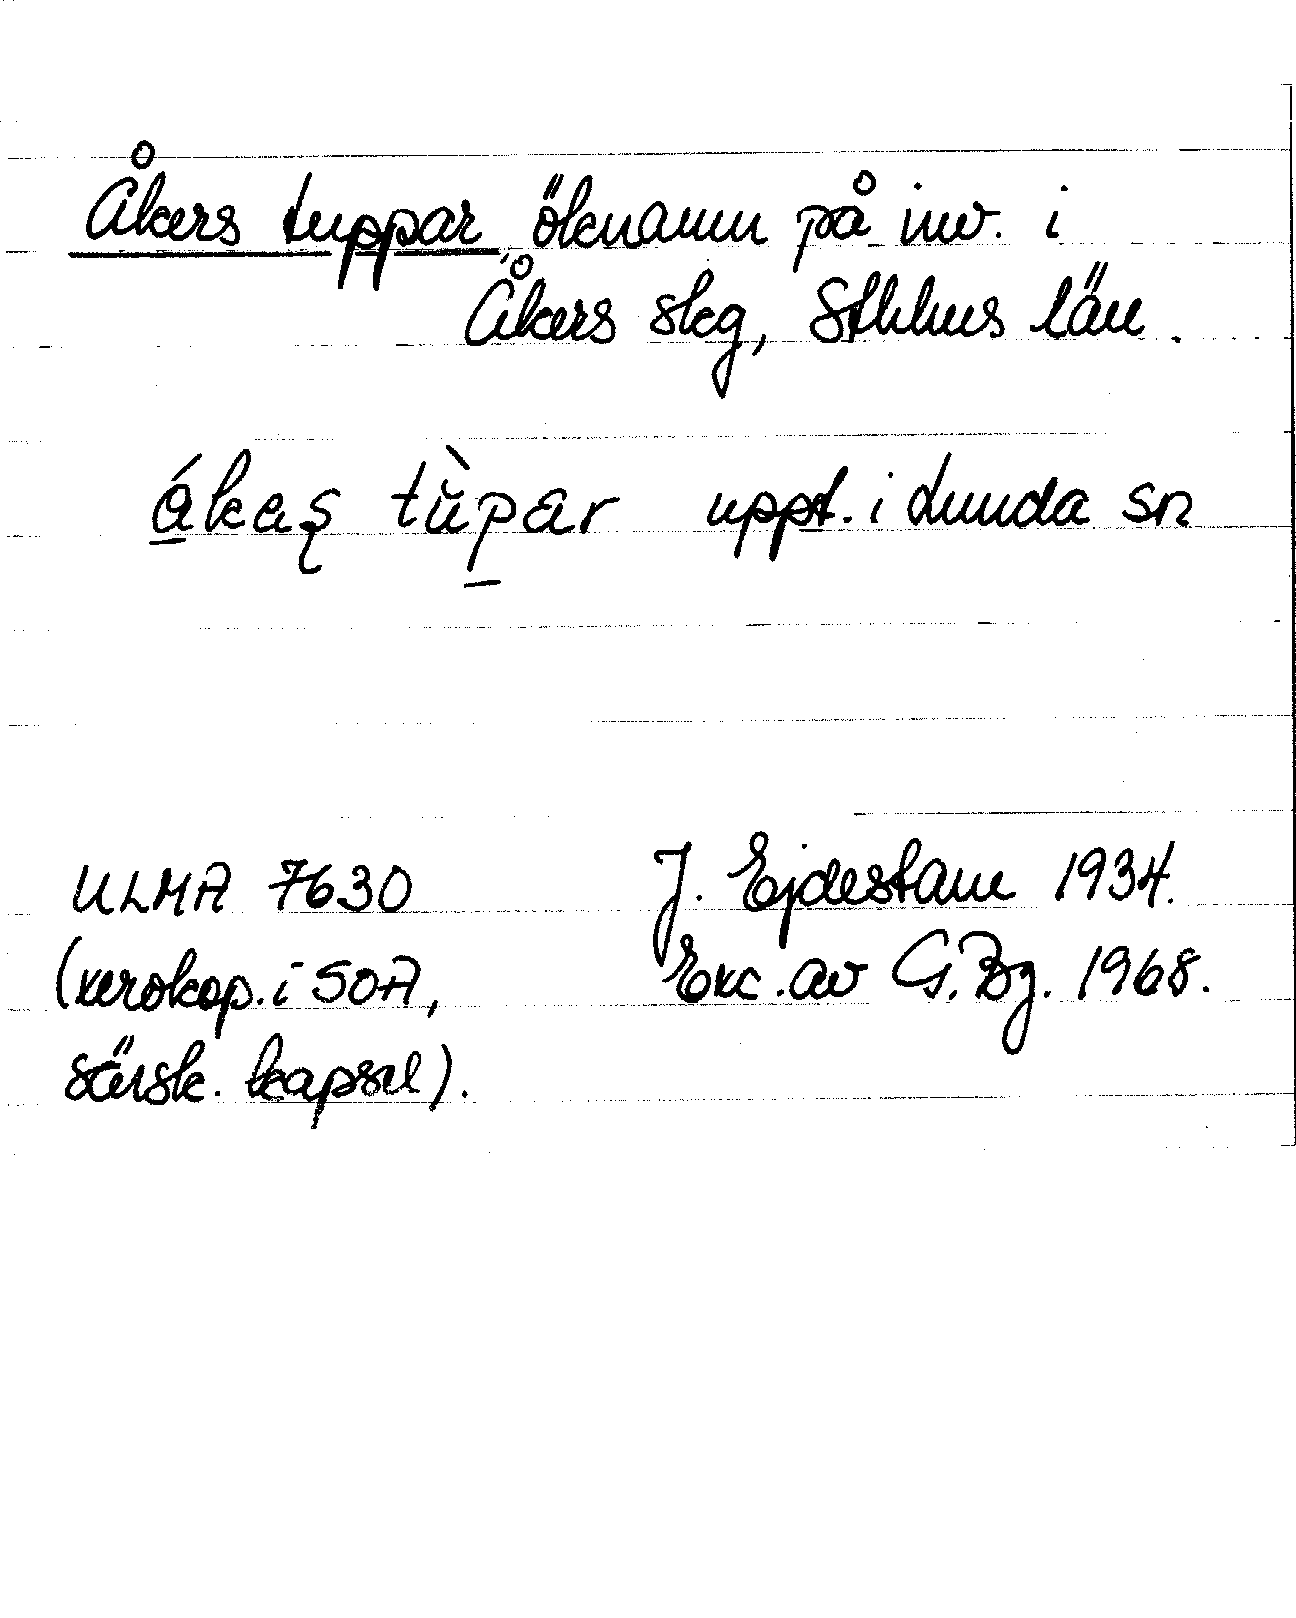 Åkers tuppar, öknamn på inv. i
Åkers skg, Sthlms län.
á̱kaş tù̆p̱ar uppt. i Lunda sn
ULMA 7630 J. Ejdestam 1934.
(xerokop. i SOA, Exc. av G. Bg. 1968.
särsk. kapsel).